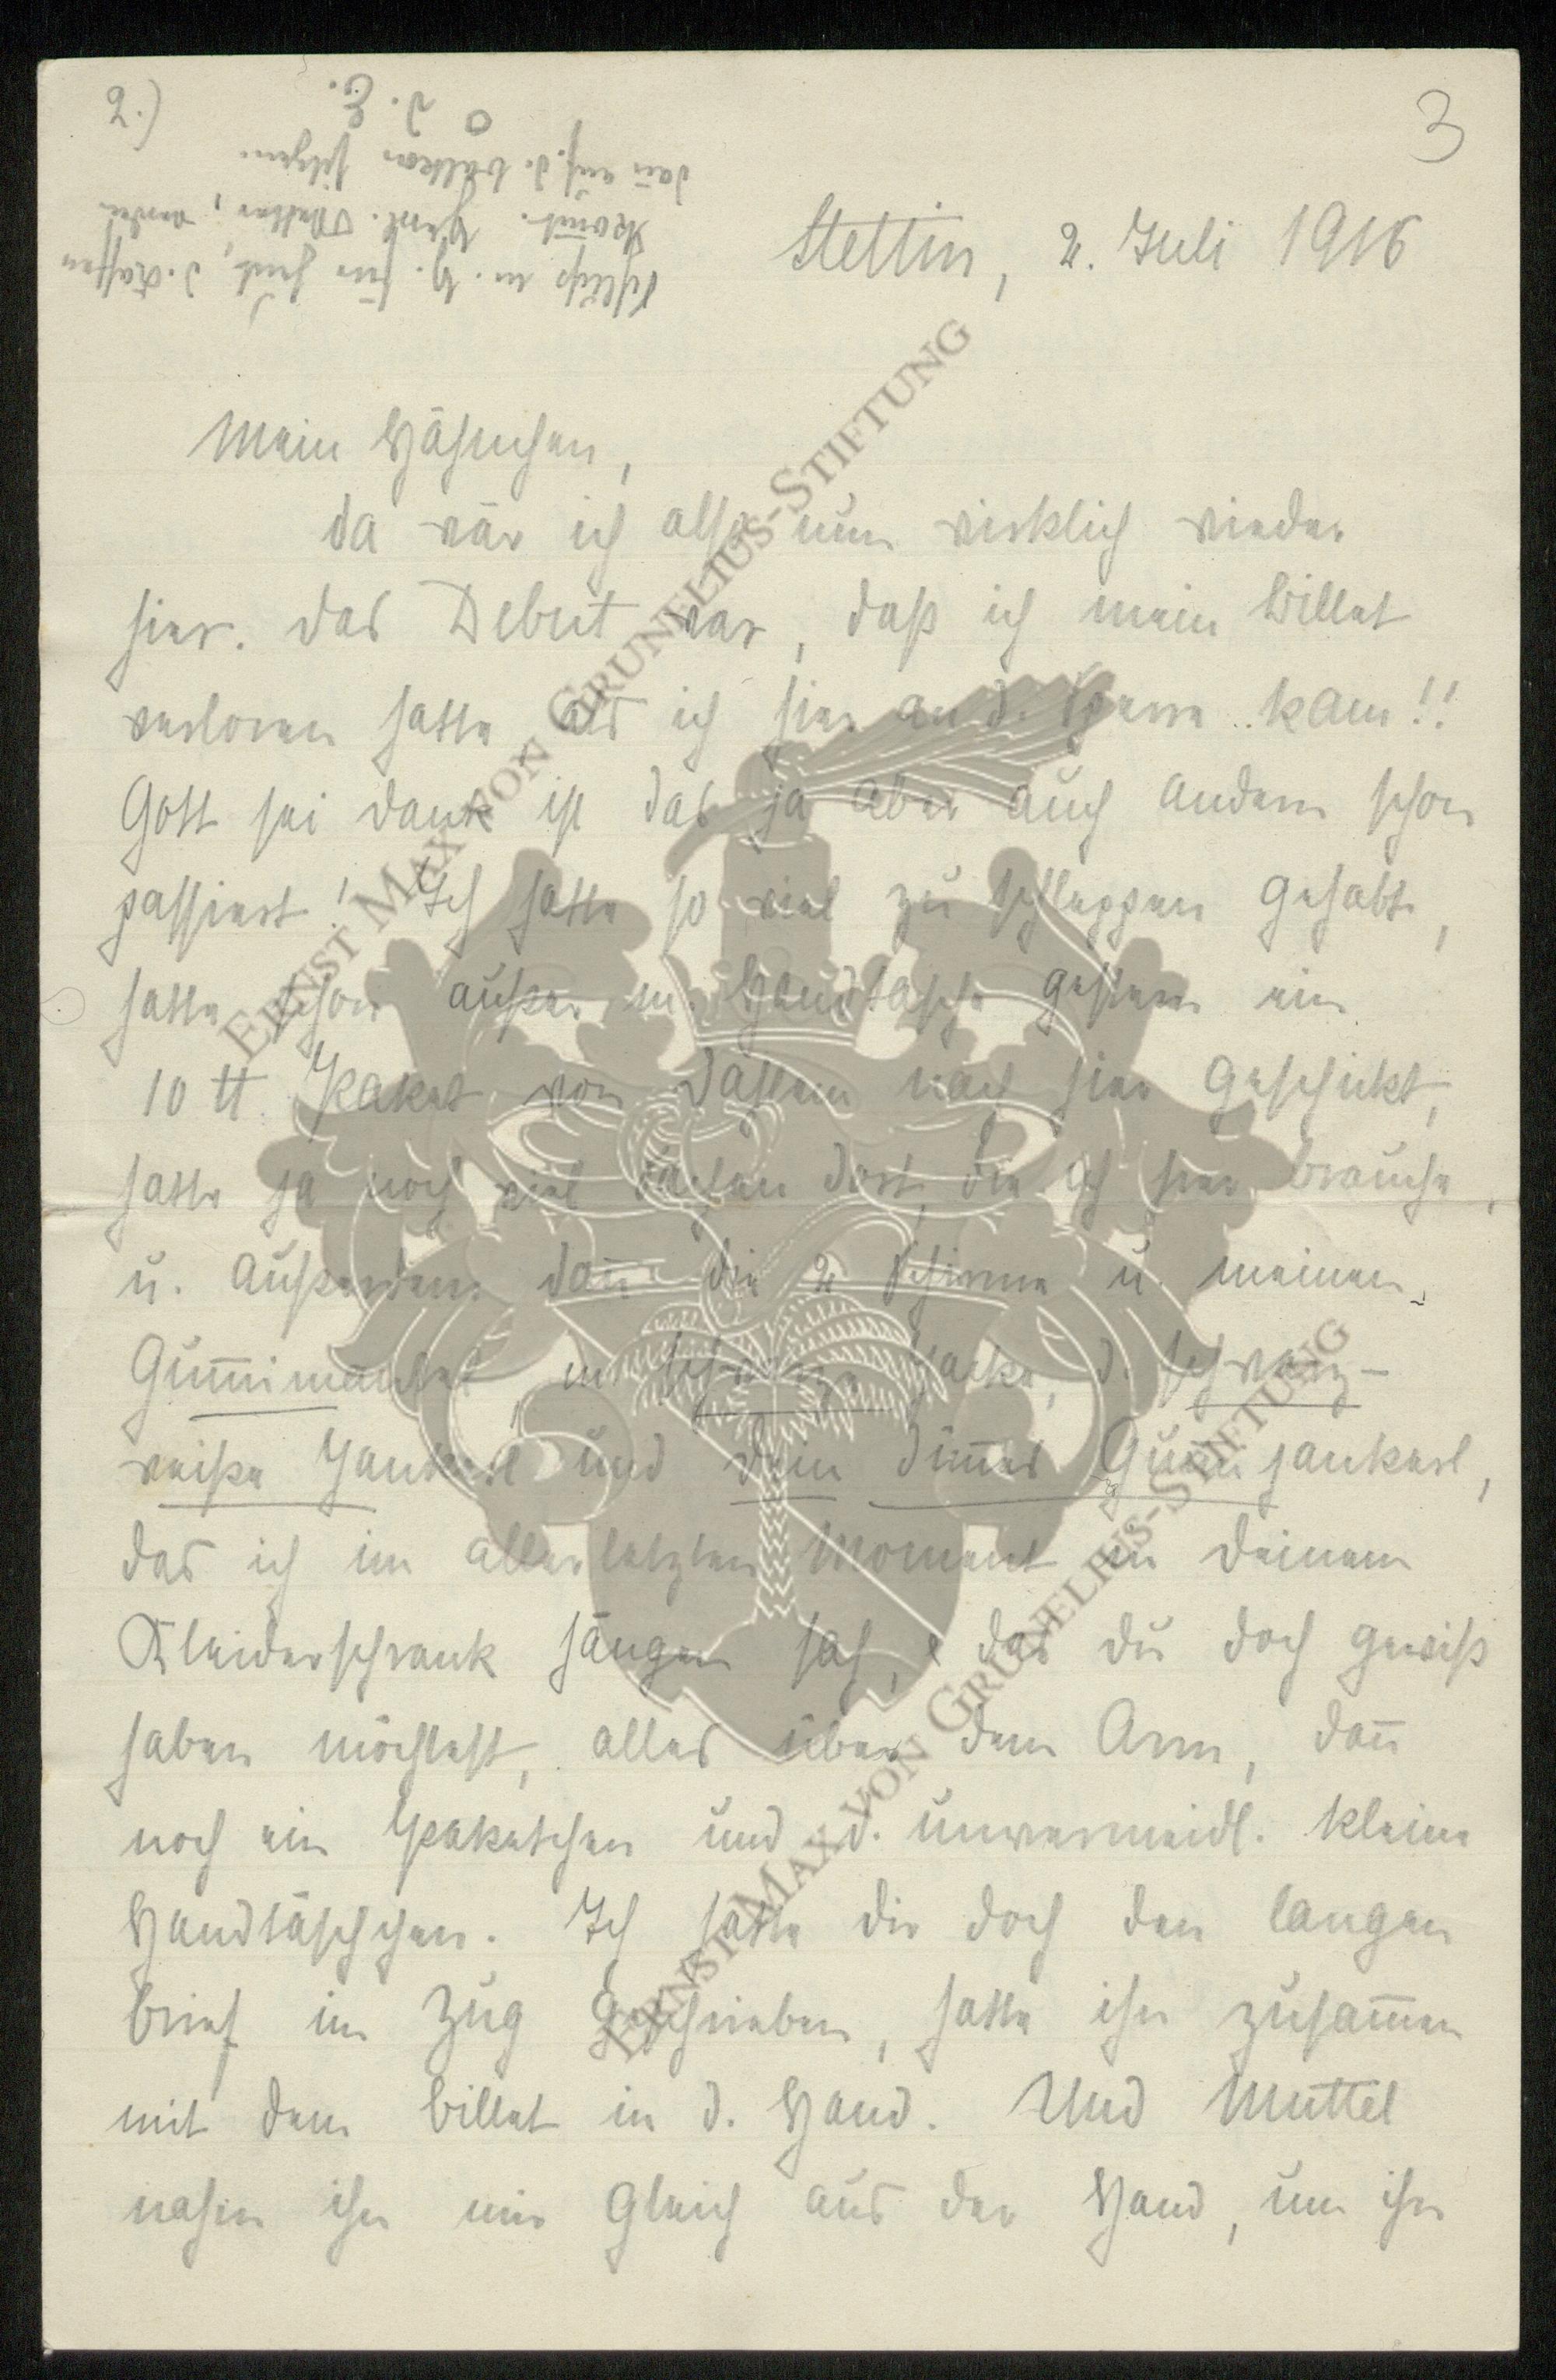 2.)
3
Schluß m. H. für heut, d. Kaffee
kom̄t. Herrl. Wetter, werden
dan̄ auf d. Balkon sitzen.
D. E.
Stettin, 2. Juli 1916
Mein Häschen,
da wär ich also nun wirklich wieder
hier. Das Debut war, daß ich mein Billet
verloren hatte als ich hier an d. Sperre kam!!
Gott sei dank ist das ja aber auch andern schon
passiert! Ich hatte so viel zu schleppen gehabt,
hatte schon außer m. Handtasche gestern ein
10 ℔ Paket von dahem nach hier geschickt,
hatte ja noch viel Sachen dort, die ich hier brauche,
u. außerdem dan̄ die 2 Schirme u. meinen
Gum̄imantel m. schwarze Jacke, d. schwarz-
weiße Jankerl und dein dün̄es Jankerl,
das ich im allerletzten Moment in deinem
Kleiderschrank hängen sah, das du doch gewiß
haben möchtest, alles über dem Arm, dan̄
noch ein Paketchen und d. unvermeidl. kleine
Handtäschchen. Ich hatte dir doch den langen
Brief im Zug geschrieben, hatte ihn zusam̄en
mit dem Billet in d. Hand. Und Muttel
nahm ihn mir gleich aus der Hand, um ihn
ERNST MAX VON GRUNELIUS-STIFTUNG
ERNST MAX VON GRUNELIUS-STIFTUNG